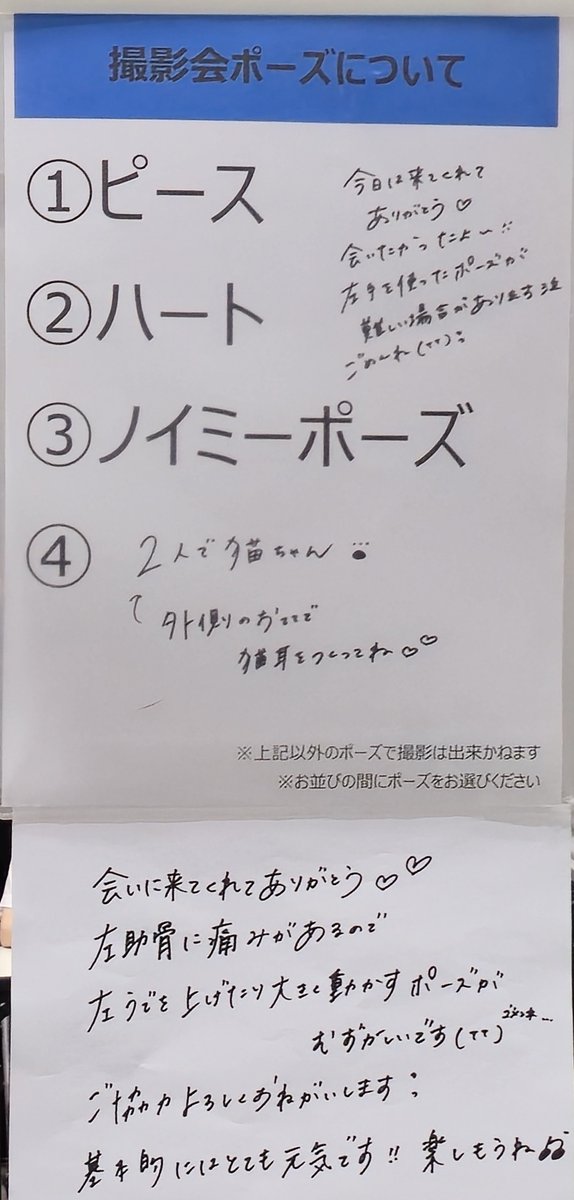 撮影会ポーズについて
①ピース
②ハート
③ノイミーポーズ
④ 2人で猫ちゃん
外側のおててで
猫耳をつくってね♡♡
今日は来てくれて
ありがとう♡
会いたかったよ〜!!
左手を使ったポーズが
難しい場合があります泣
ごめんね(TT)
※上記以外のポーズで撮影は出来かねます
※お並びの間にポーズをお選びください
会いに来てくれてありがとう♡♡
左助骨に痛みがあるので
左うでを上げたり大きく動かすポーズが
むずかしいです(TT)
ご協力よろしくおねがいします
基本的にはとても元気です!! 楽しもうね♫